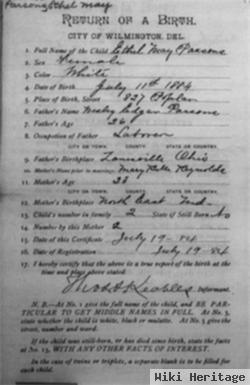 Parsons, Ethel May
RETURN OF A BIRTH.
CITY OF WILMINGTON, DEL.
1. Full Name of the Child Ethel May Parsons
2. Sex Female
3. Color White
4. Date of Birth July 11th 1884
5. Place of Birth, Street 827 Poplar
6. Father's Name Wesley Edgar Parsons
7. Father's Age 26
8. Occupation of Father Laborer
CITY OR TOWN. COUNTY. STATE OR COUNTRY.
9. Father's Birthplace Zanesville Ohio
10. Mother's Name prior to marriage, Mary Kate Reynolds
11. Mother's Age 23
CITY OR TOWN. COUNTY. STATE OR COUNTRY.
12. Mother's Birthplace North East Md.
13. Child's number in family 2 State of Still Born No
14. Number by this Mother 2
15. Date of this Certificate July 19 - 84
16. Date of Registration July 19 - 84
17. I hereby certify that the above is a true report of the birth at the
time and place above stated.
Informant.
N. B.—At No. 1 give the full name of the child, and BE PAR-
TICULAR TO GET MIDDLE NAMES IN FULL. At No. 3
state whether the child is white, black or mulatto. At No. 5 give the
street, number and ward.
If the child was still-born, or has died since birth, state the facts
at No. 13, WITH ANY OTHER FACTS OF INTEREST.
In the case of twins or triplets, a separate blank is to be filled for
each child.
© AncientFaces